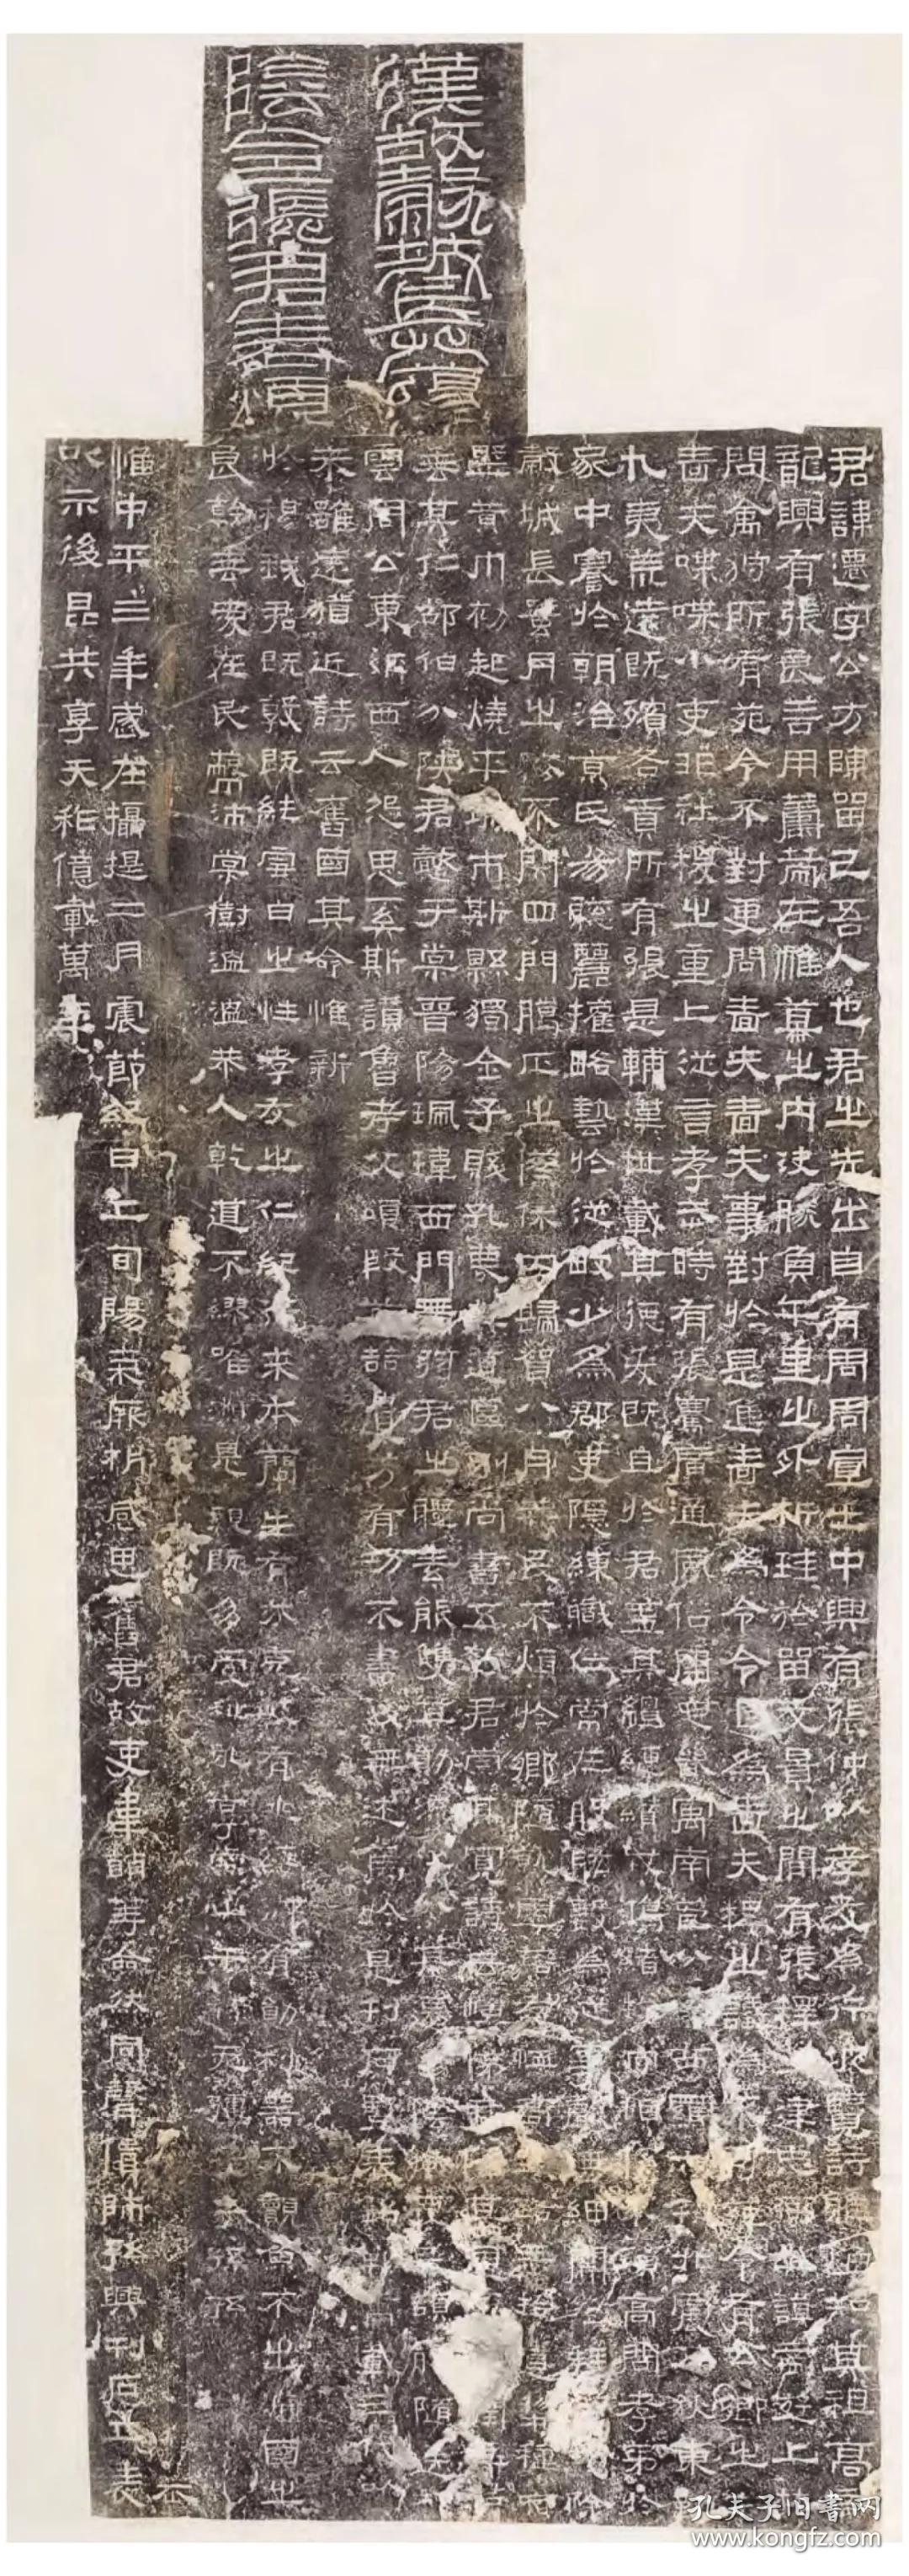 漢故穀城長蕩
陰令張君表頌
君諱遷字公方陳留己吾人也君之先出自有周周宣王中興有張仲以孝友為行披覽詩雅煥知其祖高帝
龍興有張良善用籌策在帷幕之內決勝負千里之外析珪於留文景之間有張釋之建忠弼之謨帝遊上
問禽狩所有苑令不對更問嗇夫嗇夫事對於是進嗇夫為令令退為嗇夫釋之議為不可苑令有公卿之
嗇夫喋喋小吏非社稷之重上從言孝武時有張騫廣通風俗開定畿寓南苞八西羈六北震五狄東
九夷荒遠既殯各貢所有張是輔漢世載其德爰既且於君蓋其繵縺纘戎鴻緒牧守相係不殞高問孝弟於
家中謇於朝治京氏易聰麗權略藝於從畋少為郡吏隱練職位常在股肱數為從事聲無細聞徵拜郎中除
穀城長蠶月之務不閉四門臘正之祭休囚歸賀八月筭民不煩於鄉隨就虛落存恤高年路無拾遺犁種宿
野黃巾初起燒平城市斯縣獨全子賤孔蔑其道區別尚書五教君崇其寬詩云愷悌君隆其恩東里潤色君
垂其仁邵伯分陝君懿于棠晉陽珮瑋西門帶弦君之體素能雙其勛流化八基遷蕩陰令吏民頡頏隨送如
雲周公東征西人怨思奚斯讚魯考父頌殷前喆遺芳有功不書後無述焉於是刊石豎表銘勒萬載三代以
來雖遠猶近詩云舊國其命惟新
於穆我君既敦既純雪白之性孝友之仁紀行來本蘭生有芬克岐有兆綏御有勛利器不覿魚不出淵國之
良幹垂愛在民蔽沛棠樹溫溫恭人乾道不繆唯淑是親既多受祉永享南山干祿無疆子子孫孫
惟中平三年歲在攝提二月震節紀日上旬陽氣厥析感思舊君故吏韋萌等僉然同聲賃師孫興刊石立表
以示後昆共享天祚億載萬年
孔夫子旧書网
www.kongfz.com